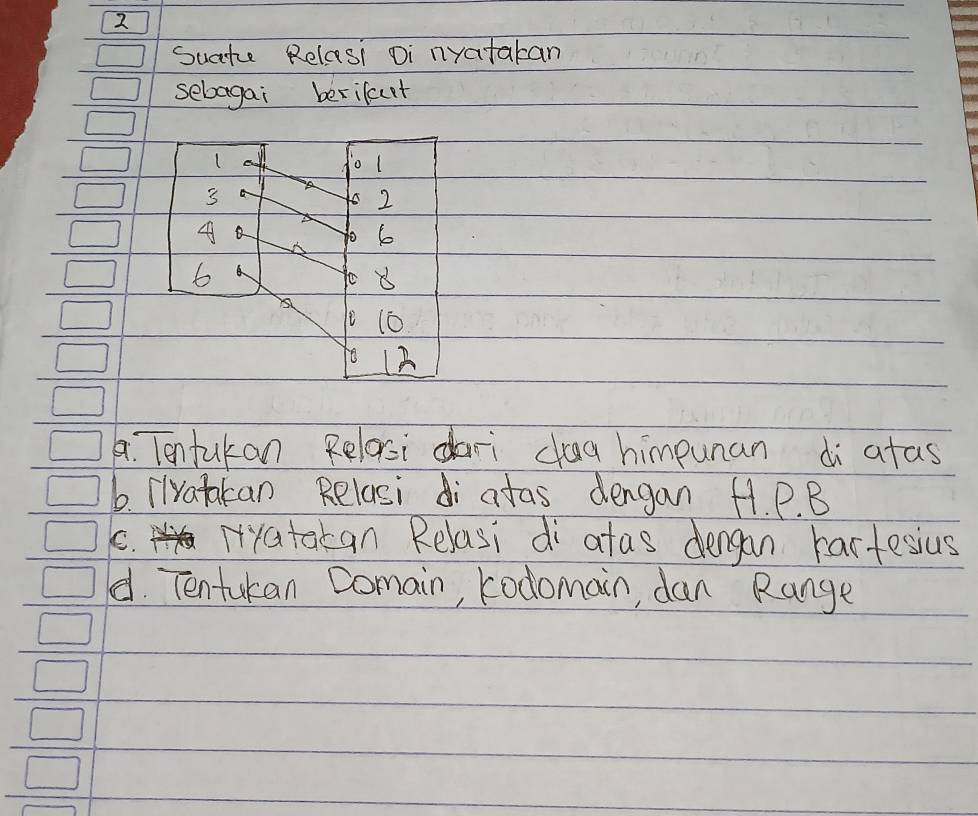 2
Suatu Relasi Di nyatakan
sebagai berikut
1 1
3 2
4 6
6 8
10
12
a. Tentukan Relasi dari dua himpunan di atas
b. Nyatakan Relasi di atas dengan H.P.B
c. Nyatakan Relasi di atas dengan kartesius
d. Tentukan Domain, kodomain, dan Range